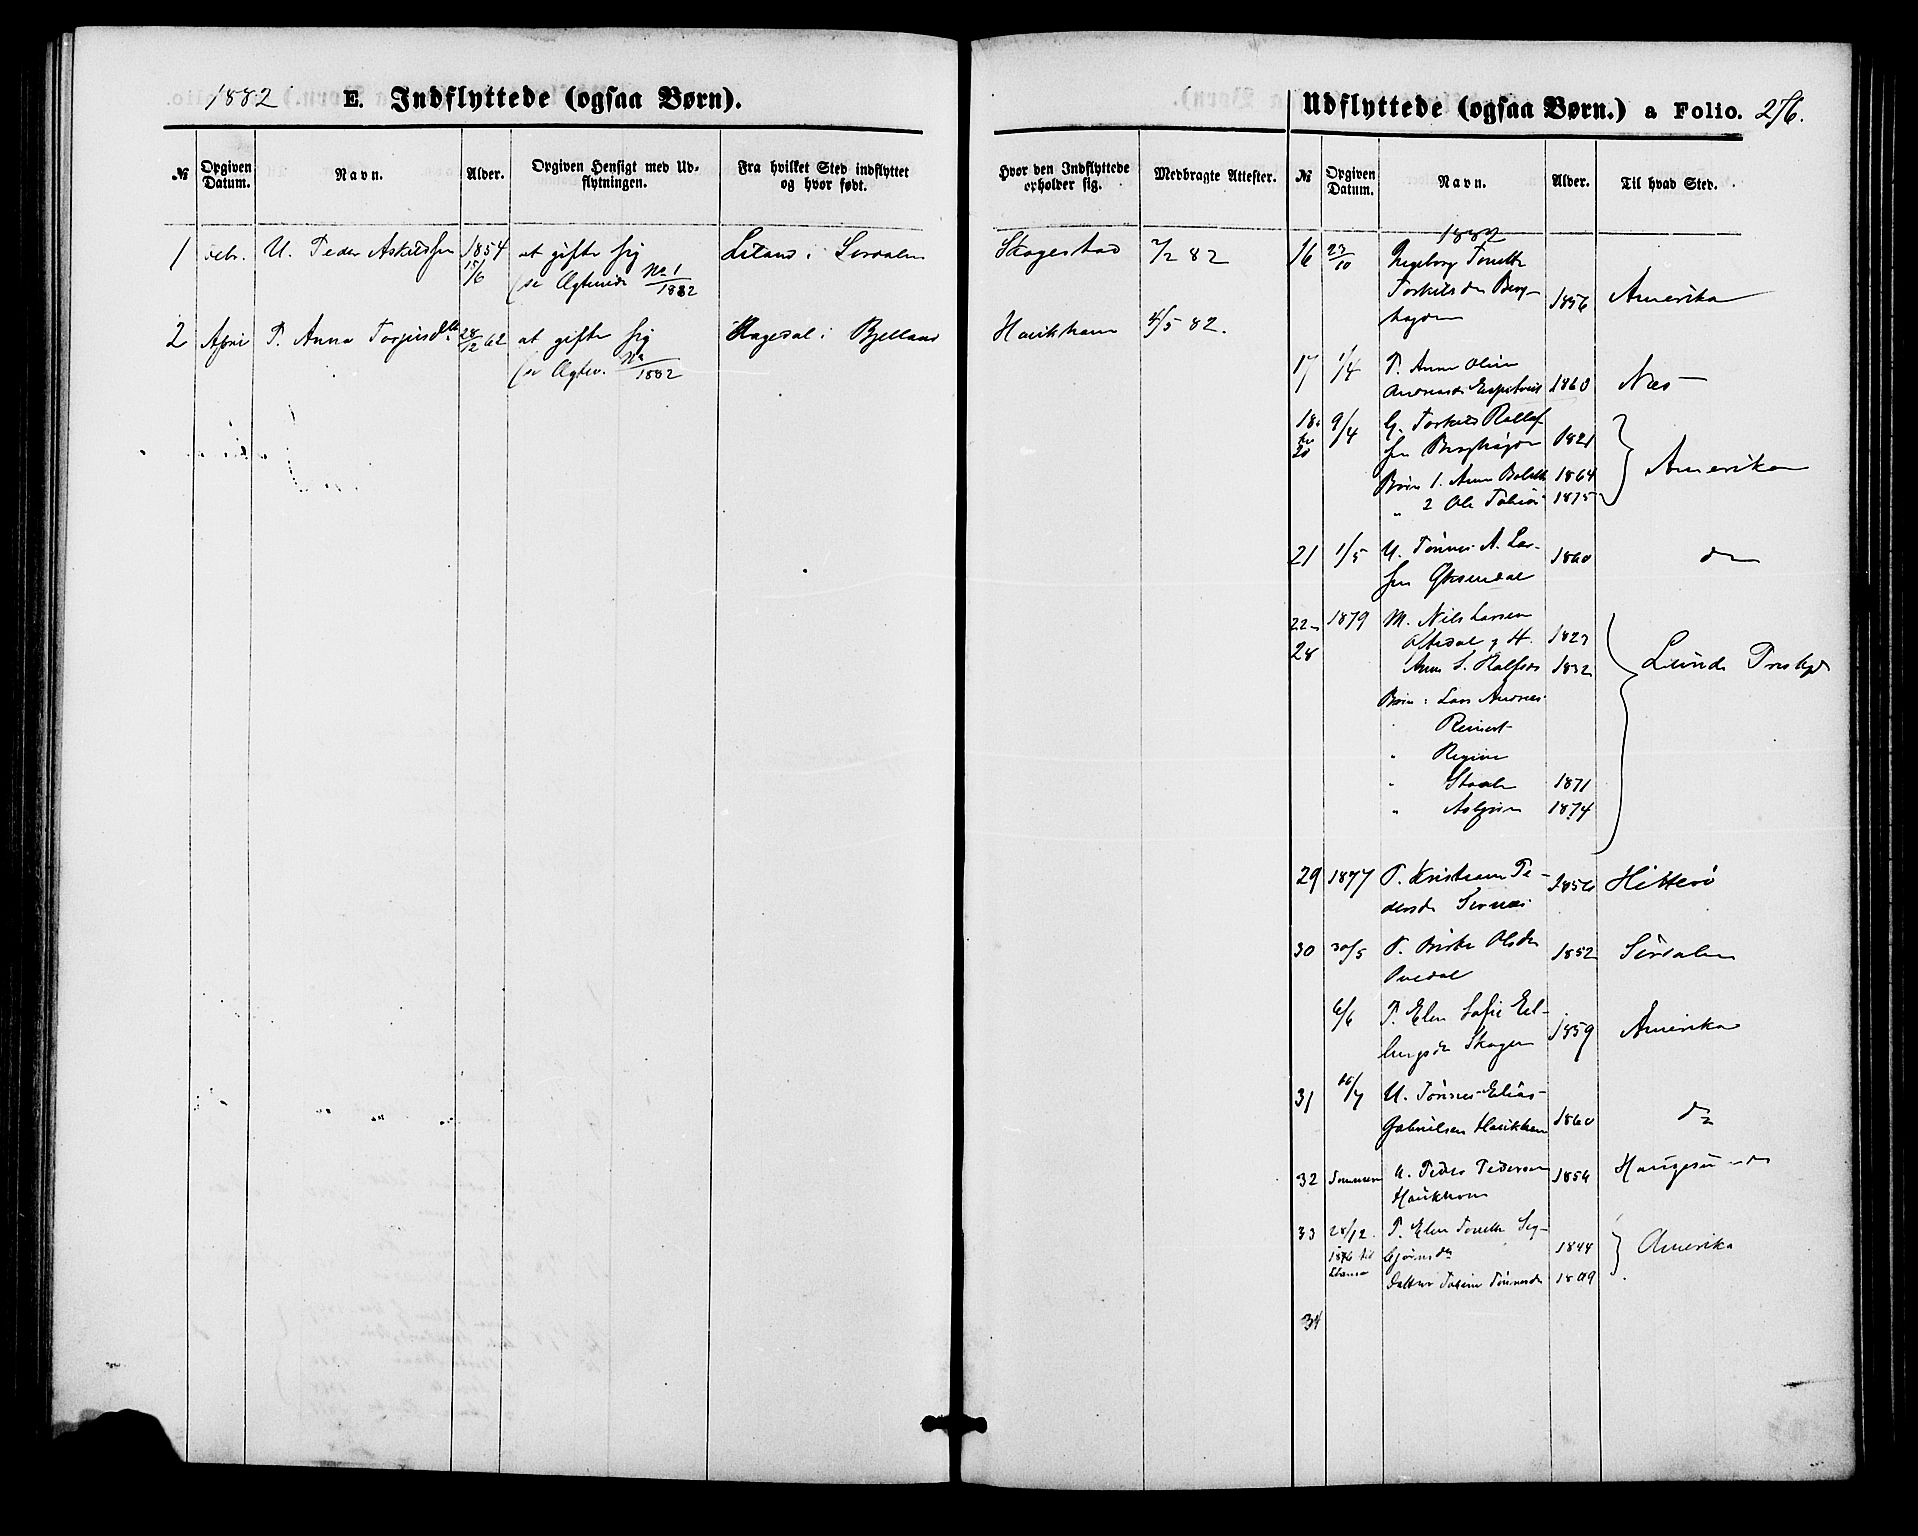 1882 E. Indflyttede (ogsaa Børn).
№ Opgiven Datum. Navn. Alder. Opgiven Hensigt med Udflytningen. Fra hvilket Sted indflyttet og hvor født.
Hvor den Indflyttede opholder sig. Medbragte Attester.
1 Febr. U. Peder Askildsen 1854 at gifte sig Liland i Sirdalen Skagestad 7/2 82
19/6 (se Ægteviede No 1/1882
2 April P. Anna Torjusdtr 28/12 62 at gifte sig Hagedal i Bjelland Haukham 4/5 82.
(se Ægtev. No /1882
Udflyttede (ogsaa Børn.) a Folio. 276.
№ Opgiven Datum. Navn. Alder. Til hvad Sted.
1882
16 23/10 Ingeborg Tonette
Torkilsdr Berg-
hagen 1856 Amerika
17 1/4 P. Anne Oline
Andreasdr 1860 Næs
18 9/4 G. Torkild Rollef
sen Berghagen 1821
20 Børn 1. Anne Bolette 1864 Amerika
" 2 Ole Tobias 1875
21 1/5 U. Tønnes A. Lar-
sen Øksendal 1860 do
22- 1879 M. Nils Larsen
28 g H. 1823
Anne S. 1832 Lunde Prstgd
Børn : Lars Andreas
" Reinert
" Regine
" Staale 1871
" Asbjørn 1874
29 1877 P. Kristiane Pe-
dersdr Sirnes 1856 Hitterø
30 30/5 P. Birte Olsdr 1852 Sirdalen
6/6 P. Elen Sofie Eel-
bergsdr Skagen 1859 Amerika
31 10/7 U. Tønnes Elias
Gabrielsen Haukham 1860 do
32 Sommeren U. Peder Pedersen 1856 Haugesund
Haukhom
33 28/12. P. Elen Tonette Sig-
1876 til bjørnsdr 1844 Amerika
Datter Tobine Tønnesdr 1869
34